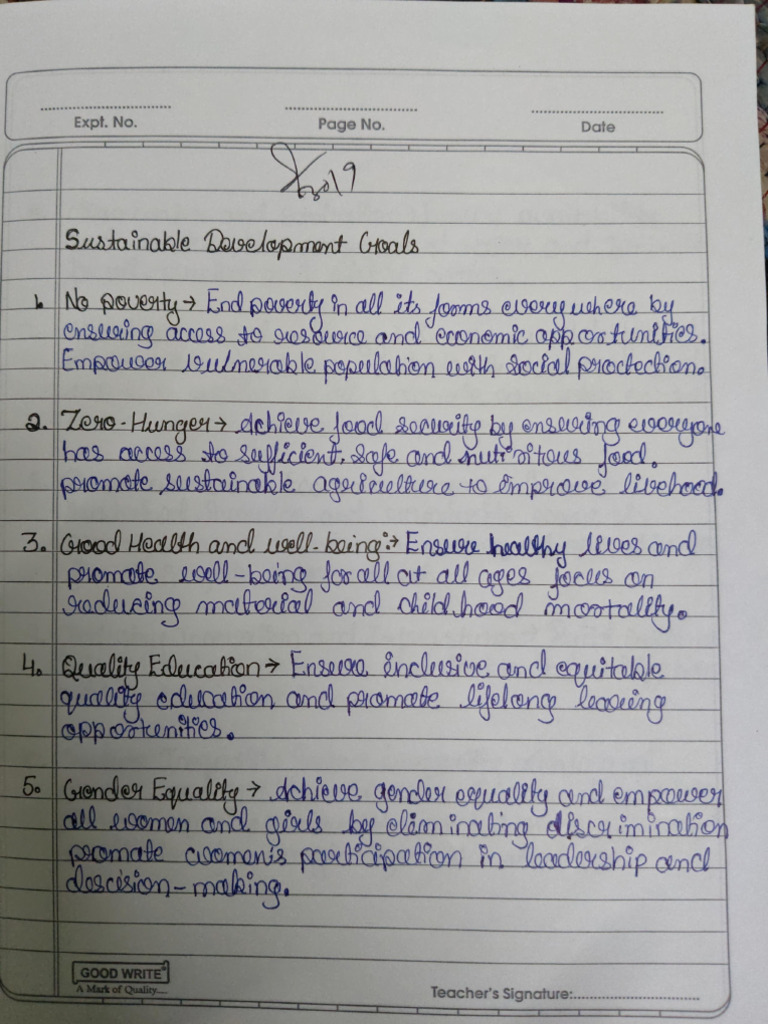 Expt. No.
Page No.
Date
Sustainable Development Goals
1. No poverty → End poverty in all its forms every where by
ensuring access to resource and economic opportunities.
Empower vulnerable population with social proctection.
2. Zero-Hunger → Achieve food security by ensuring everyone
has access to sufficient, safe and nutritous food.
promote sustainable agriculture to improve livehood.
3. Good Health and well-being:→ Ensure healthy lives and
promate well-being for all at all ages focus on
reducing material and childhood mortality.
4. Quality Education → Ensure inclusive and equitable
quality education and promate lifelong learing
opportunities.
5. Gender Equality → Achieve gender equality and empower
all women and girls by eliminating discrimination
promate women's participation in leadership and
descision-making.
GOOD WRITE
A Mark of Quality....
Teacher's Signature: